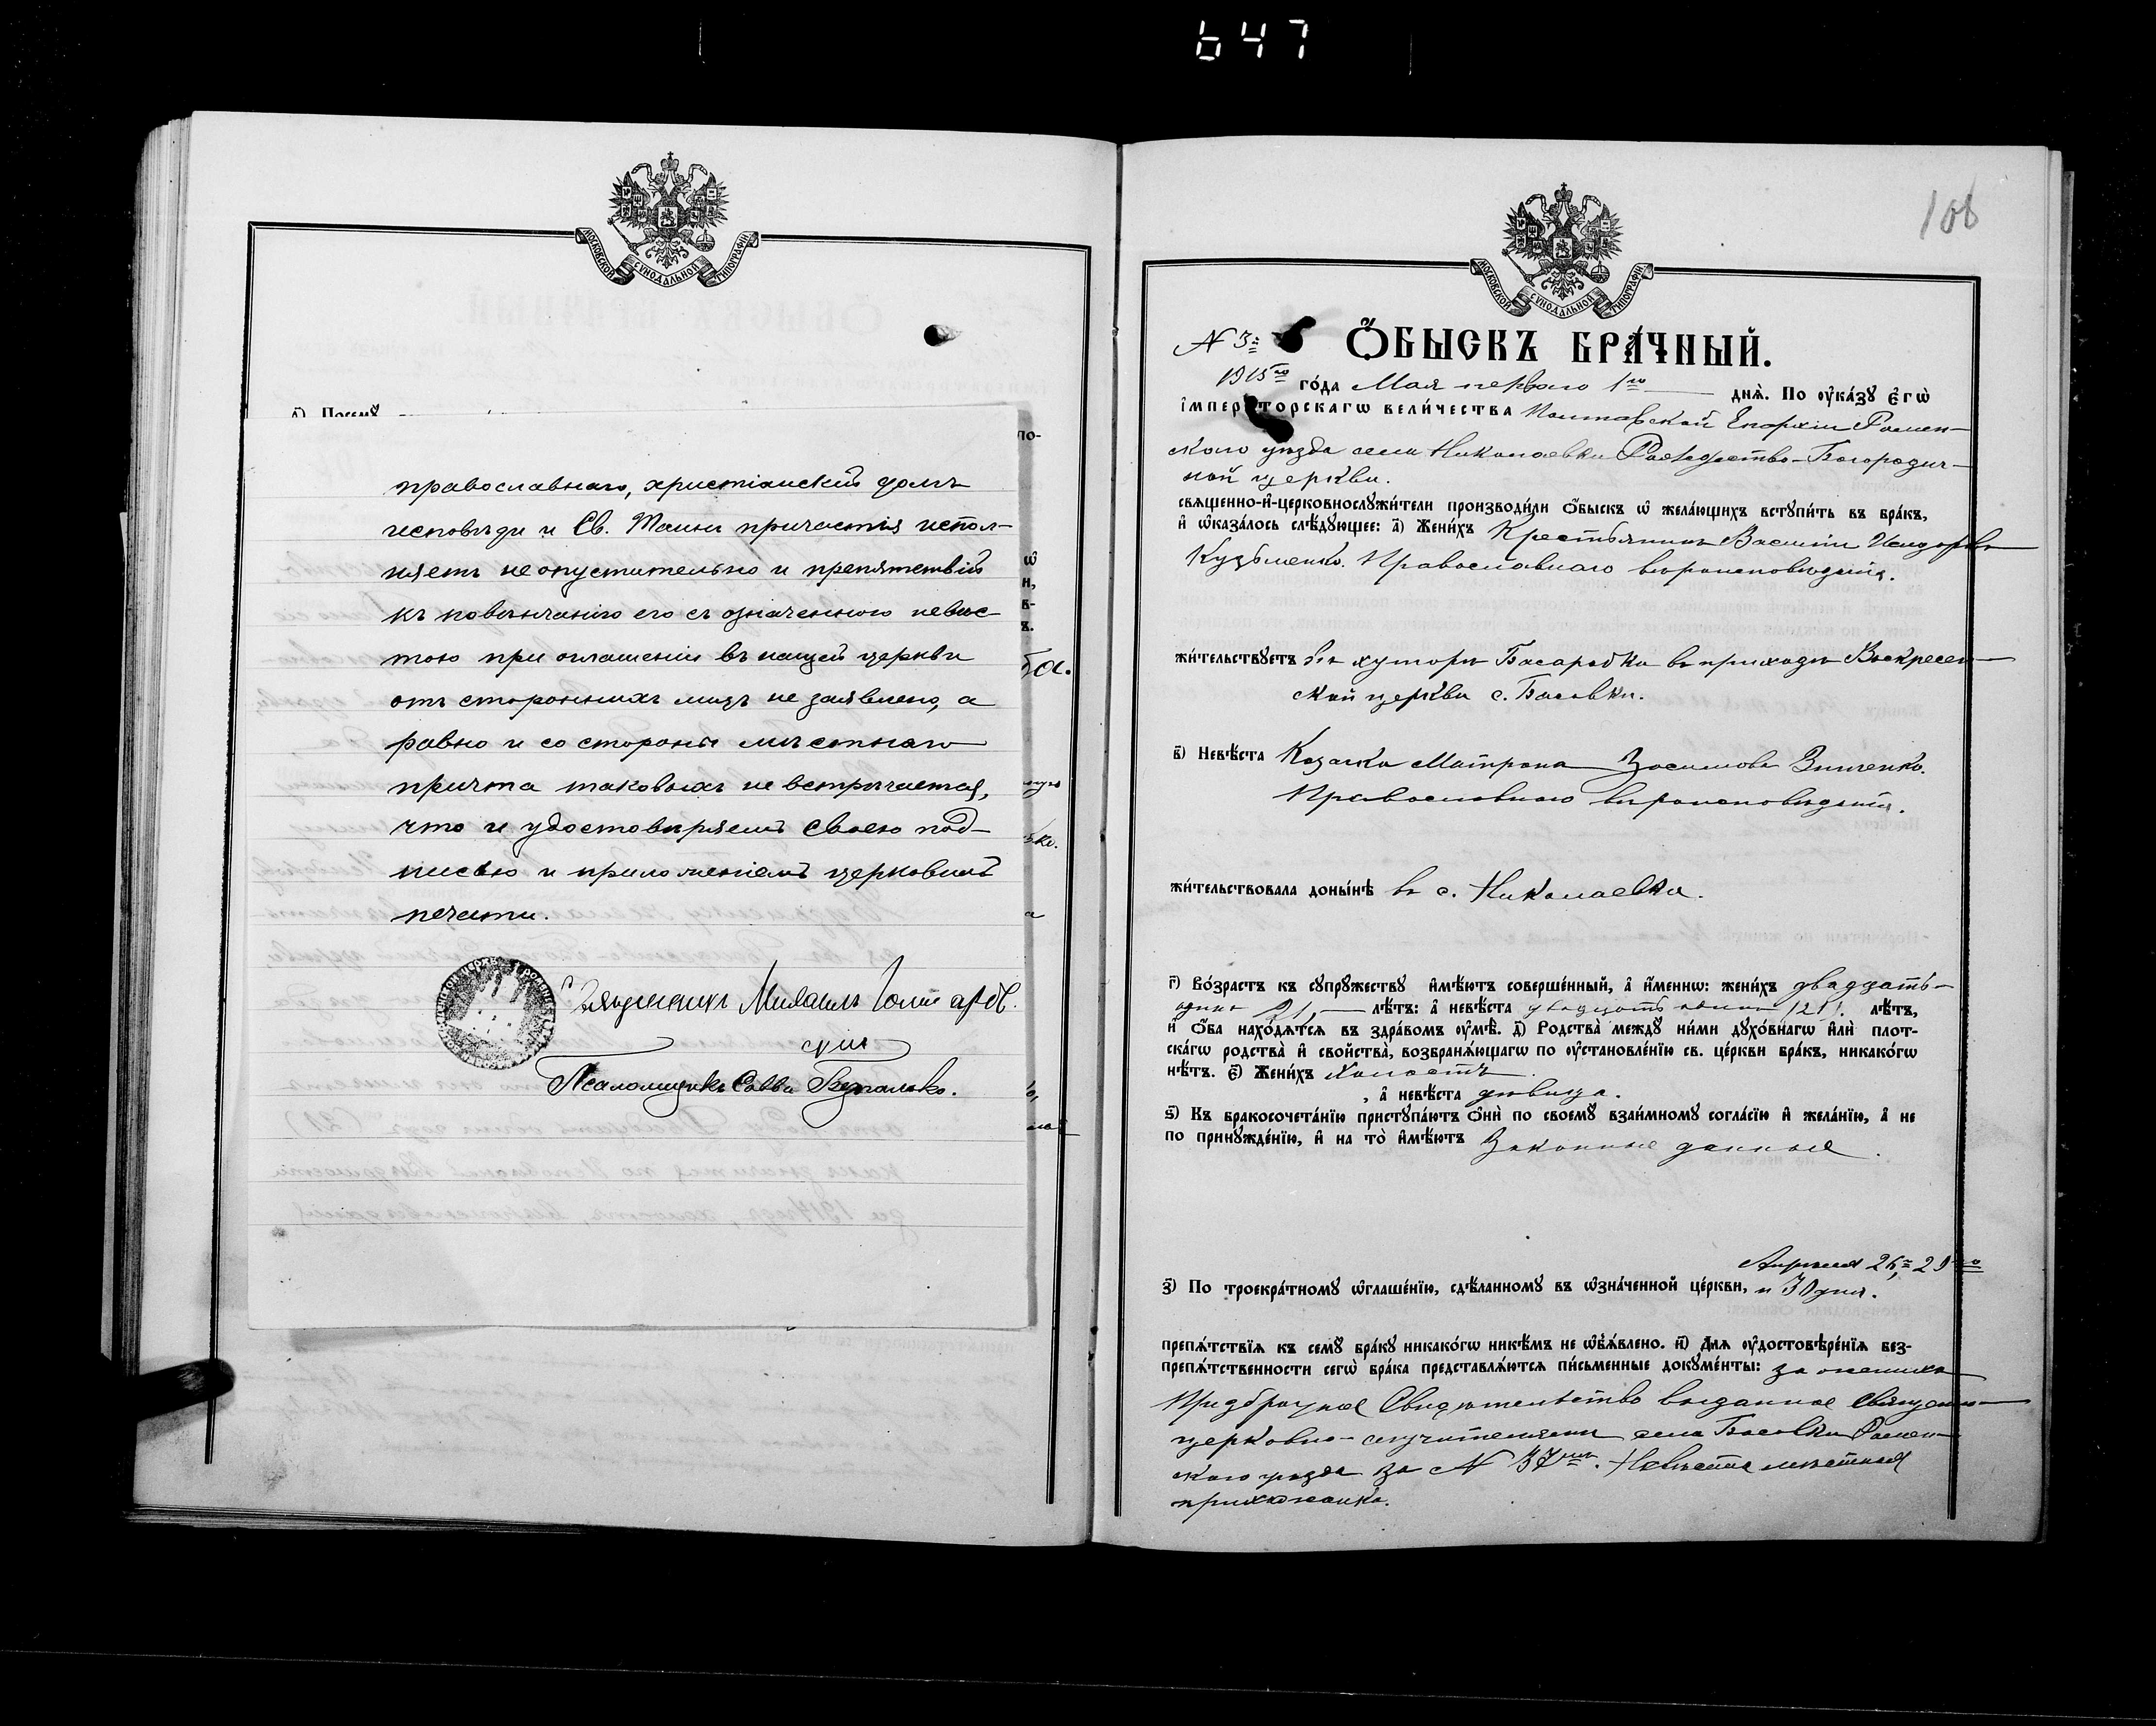 647
МОСКОВСКОЙ СѴНОДАЛЬНОЙ ТИПОГРАФІИ
по-
православнаго, христіанскій долгъ
исповѣди и Св. Таинъ причастія испол-
няетъ неопустительно и препятствій
къ повѣнчанію его съ означенною невѣс-
тою при оглашеніи въ нашей церкви
отъ стороннихъ лицъ не заявлено, а
равно и со стороны мѣстнаго
причта таковыхъ не встрѣчается,
что и удостовѣряемъ своею под-
писью и приложеніемъ церковной
печати.
Священникъ Михаилъ
Псаломщикъ Савва
108
МОСКОВСКОЙ СѴНОДАЛЬНОЙ ТИПОГРАФІИ
N 3.
Ѻ҆БЫСКЪ БРА́ЧНЫЙ.
1915го го́да Мая перваго 1го дня̀. По ᲂу҆ка́зꙋ Є҆гѡ̀
І҆мпера́торскагѡ вели́чества Полтавской Епархіи Ромен-
скаго уѣзда села Николаевки Рождество-Богородич-
ной церкви.
свяще́нно-и҆-церковнослꙋжи́тели производи́ли ѻ҆́быскъ ѡ҆ жела́ющихъ встꙋпи́ть въ бра́къ,
и҆ ѡ҆каза́лось слѣ́дꙋющее: а҃) Жени́хъ Крестьянинъ Василій Исидоровъ
Кузьменко. Православнаго вѣроисповѣданія.
жи́тельствꙋетъ въ хуторѣ Басаровка въ приходѣ Воскресен-
ской церкви с. Басовки.
в҃) Невѣ́ста Козачка Матрона Зосимова Зинченко.
Православнаго вѣроисповѣданія.
жи́тельствовала доны́нѣ въ с. Николаевка.
г҃) Во́зрастъ къ сꙋпрꙋ́жествꙋ и҆мѣ́ютъ соверше́нный, а҆ и҆́менно: жени́хъ двадцать-
одинъ 21, лѣ́тъ: а҆ невѣ́ста двадцать одинъ (21). лѣ́тъ,
и҆ ѻ҆́ба нахо́дятся въ здра́вомъ ᲂу҆мѣ̀. д҃) Родства̀ междꙋ̀ ни́ми дꙋхо́внагѡ и҆лѝ плот-
ска́гѡ родства̀ и҆ сво́йства̀, возбраня́ющагѡ по ᲂу҆становле́нїю св. це́ркви бра́къ, никако́гѡ
нѣ́тъ. є҃) Жени́хъ холостъ
, а҆ невѣ́ста дѣвица.
ѕ҃) Къ бракосочета́нїю пристꙋпа́ютъ ѻ҆нѝ по своемꙋ̀ взаи́мномꙋ согла́сїю и҆ жела́нїю, а҆ не
по принꙋжде́нїю, и҆ на то̀ и҆мѣ́ютъ Законные данные.
Апрѣля 26, 29го
з҃) По троекра́тномꙋ ѡ҆глаше́нїю, сдѣ́ланномꙋ въ ѡ҆зна́ченной це́ркви, и 30 дня.
препя́тствїя къ семꙋ̀ бра́кꙋ никако́гѡ никѣ́мъ не ѡ҆б̾я́влено. и҃) Для ᲂу҆достовѣре́нїя без-
препя́тственности сегѡ̀ бра́ка представля́ются пи́сьменные докꙋме́нты: за жениха
Предбрачное Свидѣтельство выданное Священно-
церковно-служителями села Басовки Ромен-
скаго уѣзда за N 37мъ. Невѣста мѣстная
прихожанка.